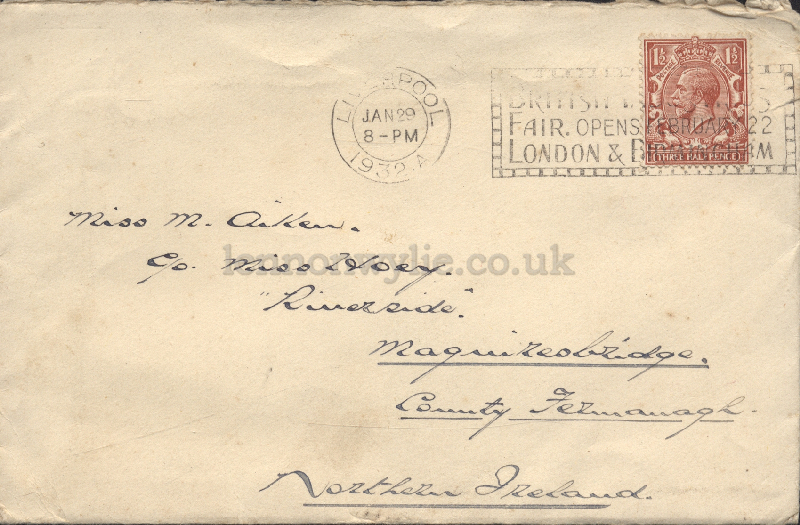 LIVERPOOL
JAN 29
8-PM
1932. A
BRITISH
FAIR. OPENS FEBRUARY 22
LONDON & BIRMINGHAM
1½ 1½
POSTAGE REVENUE
THREE HALF PENCE
Miss M. Aiken.
C/o. Miss Hoey.
"Riverside".
Maguiresbridge.
County Fermanagh.
Northern Ireland.
lennonwylie.co.uk